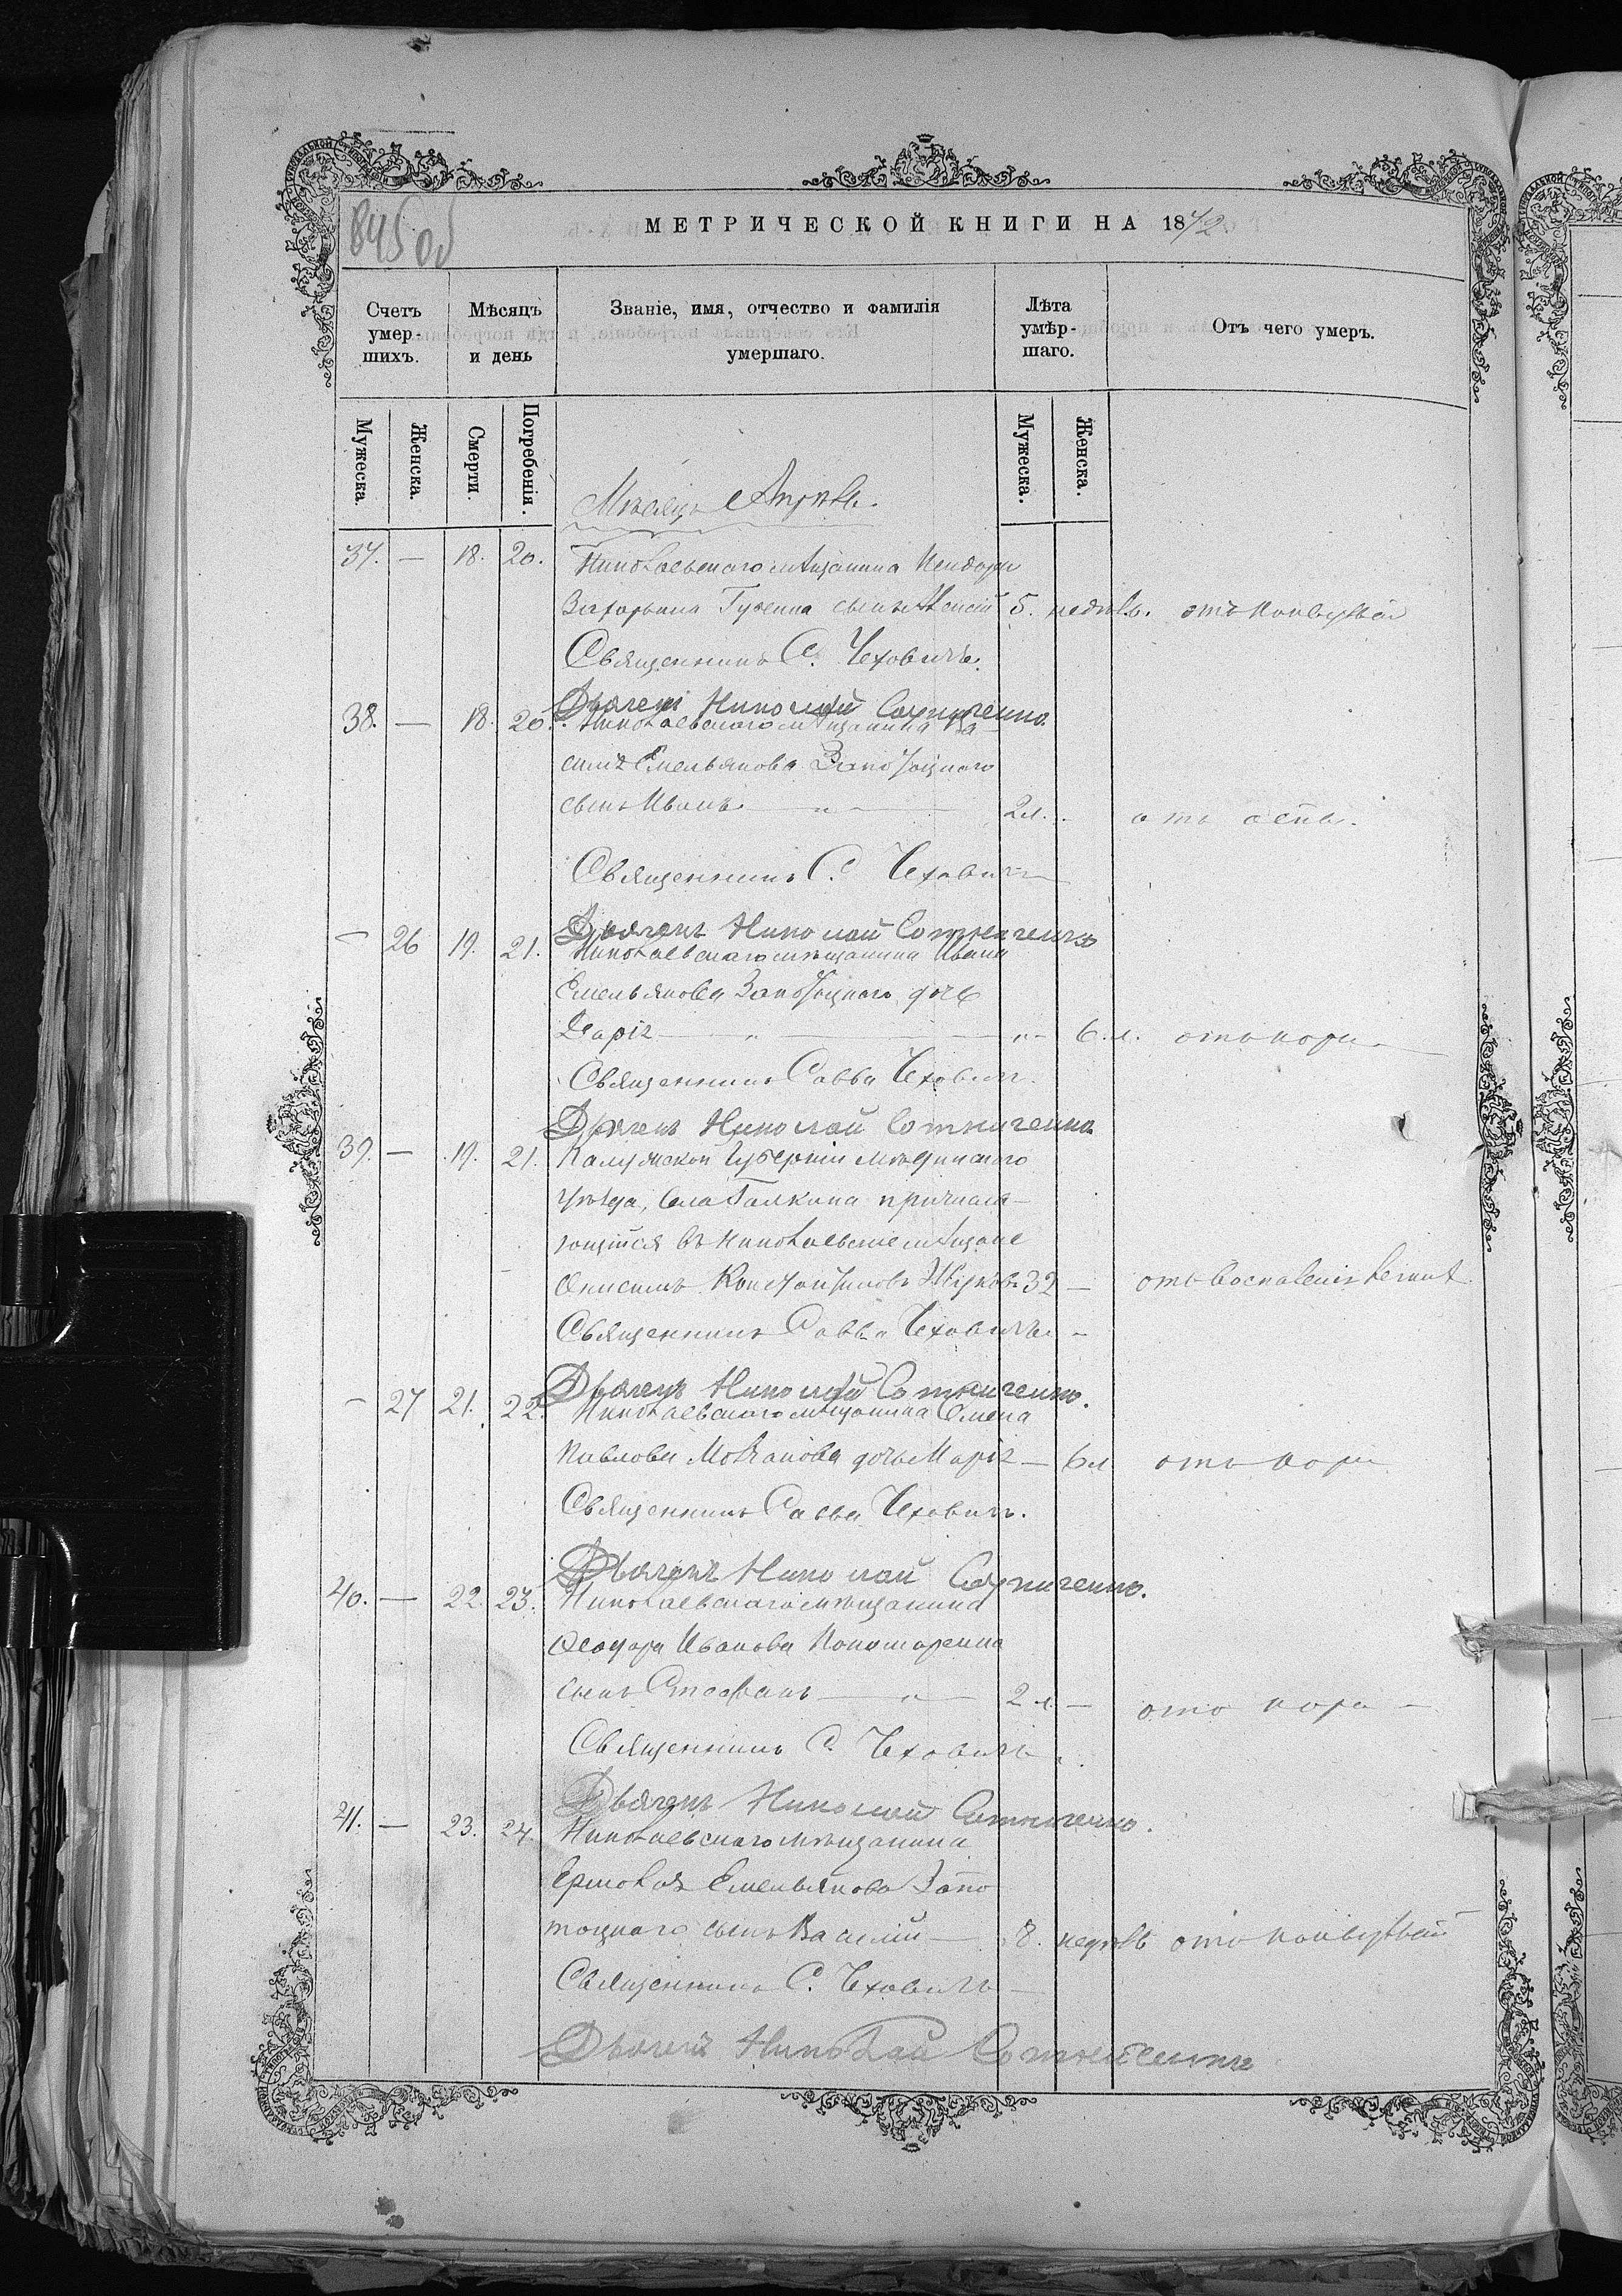 845 об
МЕТРИЧЕСКОЙ КНИГИ НА 1872
Счетъ умер-шихъ.
Мѣсяцъ и день
Званіе, имя, отчество и фамилія умершаго.
Лѣта умѣр-шаго.
Отъ чего умеръ.
Мужеска.
Женска.
Смерти.
Погребенія.
Мужеска.
Женска.
Мѣсяцъ Апрѣль.
37. — 18. 20. Николаевскаго мѣщанина
Захарьина сынъ Алексій 5. недѣль. отъ конвульсій
Священникъ С. Чеховичъ.
Дьячекъ Николай Сотниченко
38. — 18. 20. Николаевскаго мѣщанина Ва-
силія Емельянова Запотоцкаго
сынъ Иванъ — „ — 2 л. отъ оспы.
Священникъ С. Чеховичъ
Дьячекъ Николай Сотниченко
— 26 19. 21. Николаевскаго мѣщанина Ивана
Емельянова Запотоцкаго дочь
Марія — „ — „ — 6. л. отъ кори —
Священникъ Савва Чеховичъ.
Дьячекъ Николай Сотниченко
39. — 19. 21. Калужской Губерніи Мѣдынскаго
уѣзда, Села Галкина причисля-
ющійся въ Николаевскіе мѣщане
Онисимъ Константиновъ Жуковъ 32 — отъ воспаленія легкихъ
Священникъ Савва Чеховичъ —
Дьячекъ Николай Сотниченко.
— 27 21. 22. Николаевскаго мѣщанина Семена
Павлова Молчанова дочь Марія — 6 л отъ кори
Священникъ Савва Чеховичъ.
Дьячекъ Николай Сотниченко.
40. — 22. 23. Николаевскаго мѣщанина
Ѳеодора Иванова Пономаренка
сынъ Стефанъ — „ — 2 л. — отъ кори —
Священникъ С. Чеховичъ
Дьячекъ Николай Сотниченко.
41. — 23. 24. Николаевскаго мѣщанина
Ермолая Емельянова Запо
тоцкаго сынъ Василій — 8. недѣль отъ конвульсій
Священникъ С. Чеховичъ —
Дьячекъ Николай Сотниченко